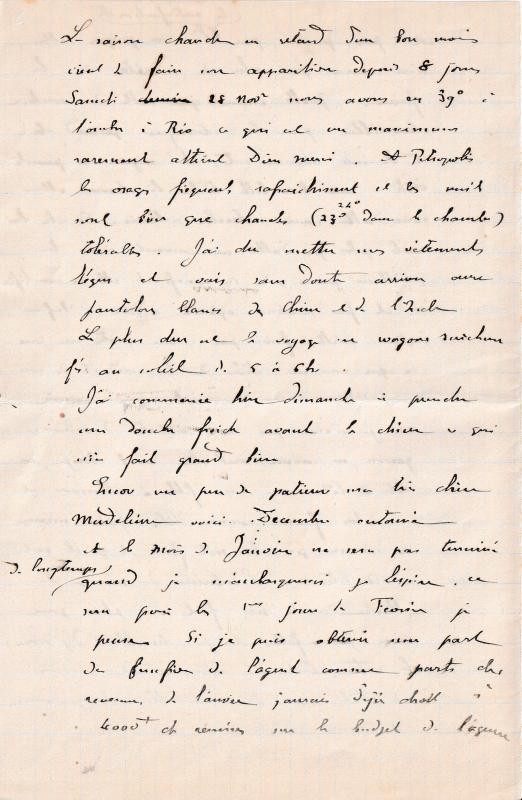 La saison chaude en retard d'un bon mois
vient de faire son apparition depuis 8 jours
Samedi 25 Nov^e nous avons eu 39° à
l'ombre à Rio ce qui est un maximum
rarement atteint Dieu merci. A Petropolis
les orages fréquents rafraichissent et les nuits
sont bien que chaudes (23° 24° dans la chambre)
tolérables. J'ai du mettre mes vêtements
légers et vais sans doute arriver aux
pantalons blancs de Chine et de l'Inde
Le plus dur est le voyage en wagons surchauf
fés au soleil de 5 à 6h.
J'ai commencé hier dimanche à prendre
une douche froide avant le diner ce qui
m'a fait grand bien
Encore un peu de patience ma très chère
Madeleine voici Décembre entamé
et le mois de Janvier ne sera pas terminé
de longtemps
quand je m'embarquerai je l'espère, ce
sera pour les 1ers jours de Fevrier je
pense. Si je puis obtenir une part
de l'agent comme parts des
revenus de l'année j'aurais déjà droit à
4000 et remises sur le budget de l'agence